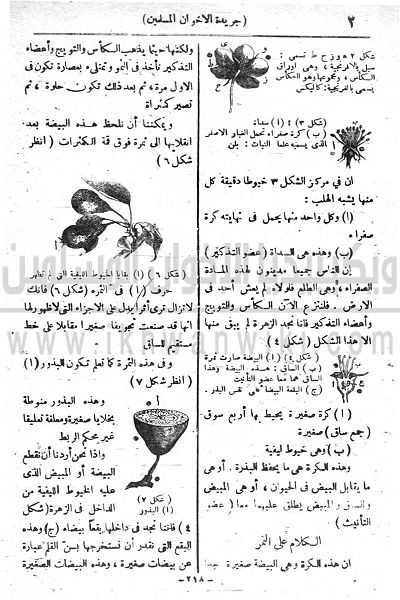 ٢
(جريدة الاخوان المسلمين)
شكل ٢ ه و ز ح ط تسمى :
سبل بالافرنجية ، وهى اوراق
الكأس ، ومجموعها وهو الكأس
يسمى بالفرنجية : كاليكس
شكل ٣ ) ( ١ ) سداة
( ب ) كرة صفراء تحمل الغبار الاصفر
الذى يسميه علما النبات : بلن
ان في مركز الشكل ٣ خيوطا دقيقة كل
منها يشبه الهلب :
( ا ) وكل واحد منها يحمل فى نهايته كرة
صفراء
( ب ) وهذه هى السداة ( عضو التذكير )
إن الناس جميعا مدينون لهذه المادة
الصفراء ، وهى الطلع فلولاه لم يعش أحد فى
الارض . فلننزع الآن الكأس والتويج
وأعضاء التذكير فانا نجد الزهرة لم يبق منها
الا هذا الشكل ( شكل ٤ )
( شكل ٤ ) ( ١ ) البيضة صارت ثمرة
( ب ) الساق : هذه البيضة وهذا
الساق هما معا عضو التأنيث
( ج ) البقعة البيضاء هى نفس البذر .
( ا ) كرة صغيرة يحيط بها أربع سوق
( جمع ساق ) صغيرة
( ب ) وهى خيوط ليفية
وهذه الكرة هى ما يحفظ البذرة . أو هى
ما يقابل البيض فى الحيوان ، أو هى المبيض
والساق والمبيض يطلق عليهما معا ( عضو
التأنيث )
الكلام على الثمر
ان هذه الكرة وهى البيضة صغيرة جدا
ولكنها حينما يذهب الكأس والتويج وأعضاء
التذكير تأخذ فى النمو وتمتلىء بعصارة تكون فى
الاول مرة ، ثم بعد ذلك تكون حلوة ، ثم
تصير كمثراة
ويمكننا أن نلحظ هذه البيضة بعد
انقلابها الى ثمرة فوق قمة الكثرات ( انظر
شكل ٦ )
( شكل ٦ ) ( ١ ) بقايا الخيوط الليفية التى لم تظهر
حرف ( ا ) فى الثمره ( شكل ٦ ) فانك
لا تزال ترى أثرا يدل على الاجزاء التى لاظهور لها
انها قد صنعت تجويفا صغيرا مقابلا على خط
مستقيم للساق .
وفى هذه الثمرة كما تعلم تكون البذور ( ا )
( انظر شكل ٧ )
وهذه البذور منوطة
بخلايا صغيرة ومعلقة تعليقا
غير محكم الربط
واذا نحن أردنا أن نقطع
البيضة أو المبيض الذى
عليه الخيوط الليفية من
الداخل فى الزهرة ( شكل
( شكل ٧ )
( ١ ) البذور
٤ ) فاننا نجد فى داخلها بقعا بيضاء ( ج ) وهذه
البقع التى نقدر أن نستخرجها بسن القلم عبارة
عن بيضات صغيرة ، وهذه البيضات الصغيرة
— ٢١٨ —